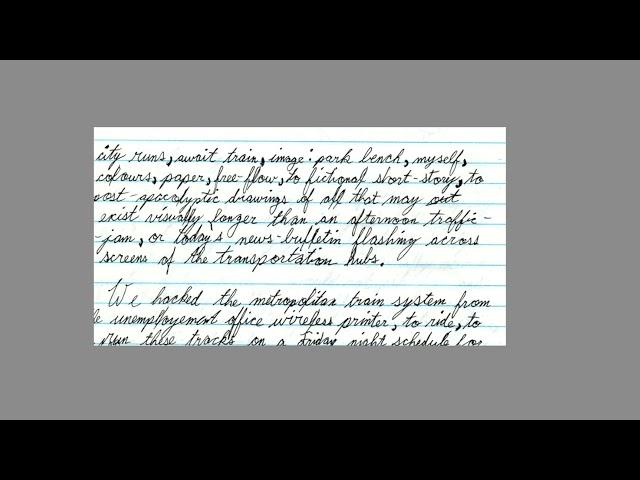 city runs, await train, image: park bench, myself,
colours, paper, free-flow, to fictional short-story, to
post-apocalyptic drawings of all that may out
exist visually longer than an afternoon traffic-
-jam, or today's news-bulletin flashing across
screens of the transportation hubs.
We hacked the metropolitan train system from
unemployement office wireless printer, to ride, to
run these tracks on a Friday night schedule for